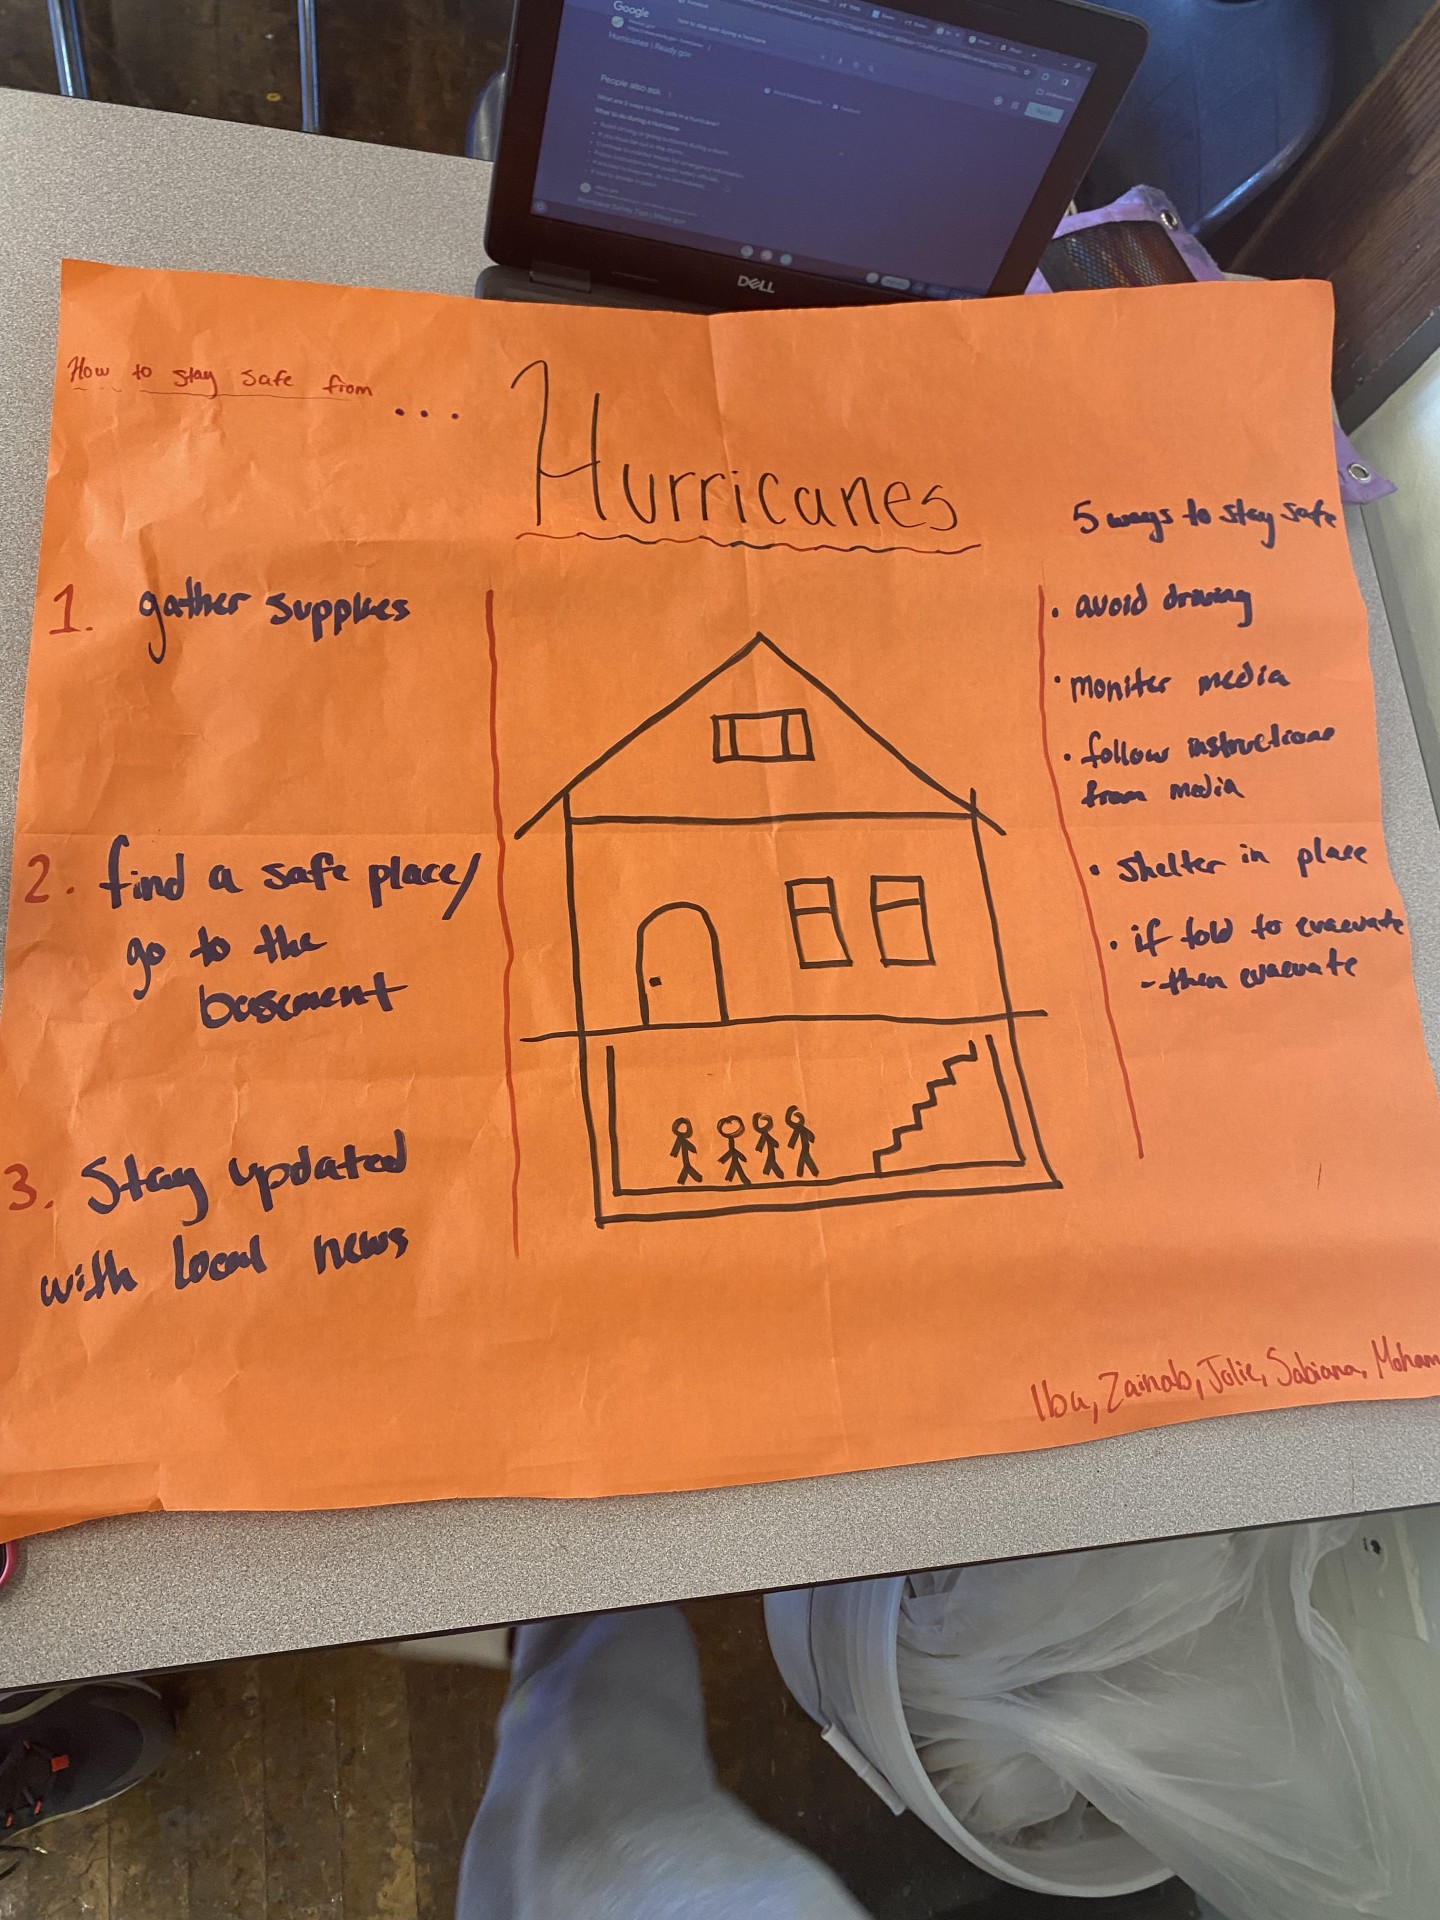 Google
Hurricanes | Ready.gov
People also ask
What to do during a Hurricane
DELL
How to stay safe from ...
Hurricanes
1. gather supplies
2. find a safe place/
go to the
basement
3. Stay updated
with local news
5 ways to stay safe
• avoid driving
• moniter media
• follow instructions
from media
• shelter in place
• if told to evacuate
- then evacuate
Iba, Zainab, Jolie, Sabiana, Moham